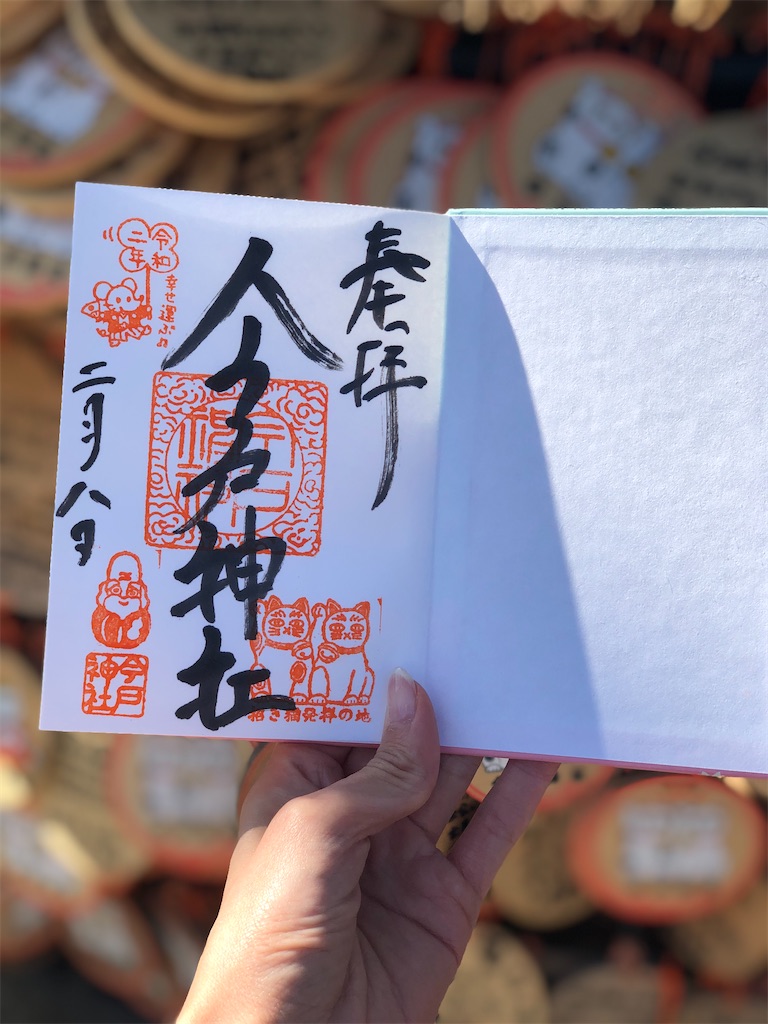 奉拝
今戸神社
令和
二年
幸せ運ぶ
二月八日
今戸
神社
招き猫発祥の地